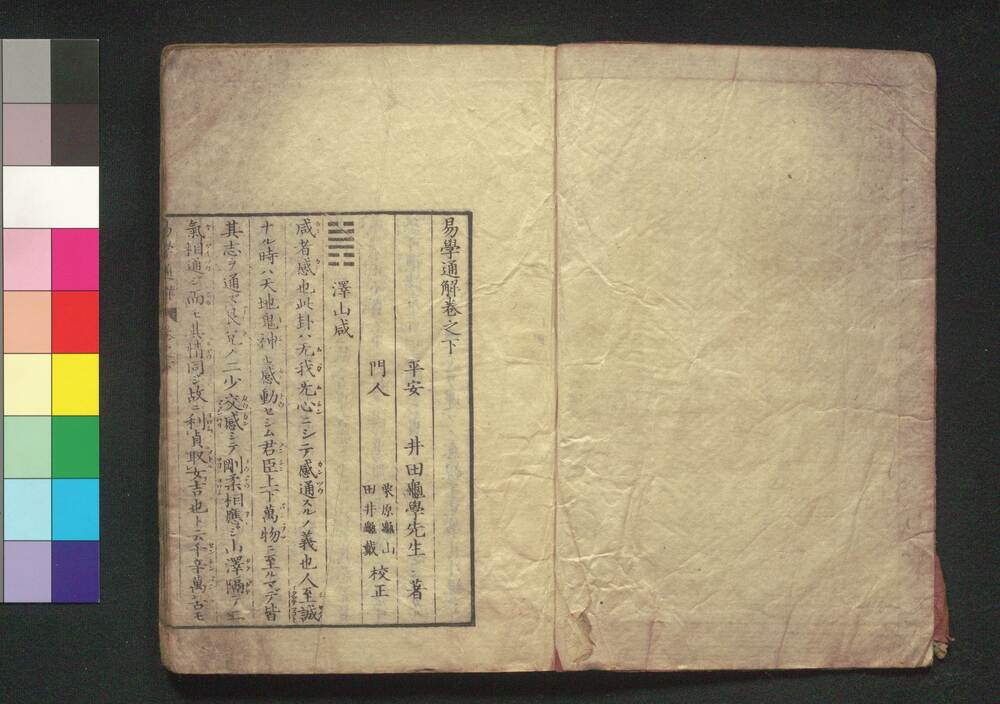 易學通解卷之下
平安 井田龜學先生 著
門人 栗原龜山 校正
田井龜戴
䷞ 澤山咸
咸者感也此卦ハ无我无心ニシテ感通スルノ義也人至誠
ナル時ハ天地鬼神モ感動セシム君臣上下萬物ニ至ルマデ皆
其志ヲ通ズ艮兌ノ二少交感シテ剛柔相應ジ山澤隔テヽ
氣相通ジ而モ其情同ジ故ニ利貞取女吉也ト云千辛萬古モ